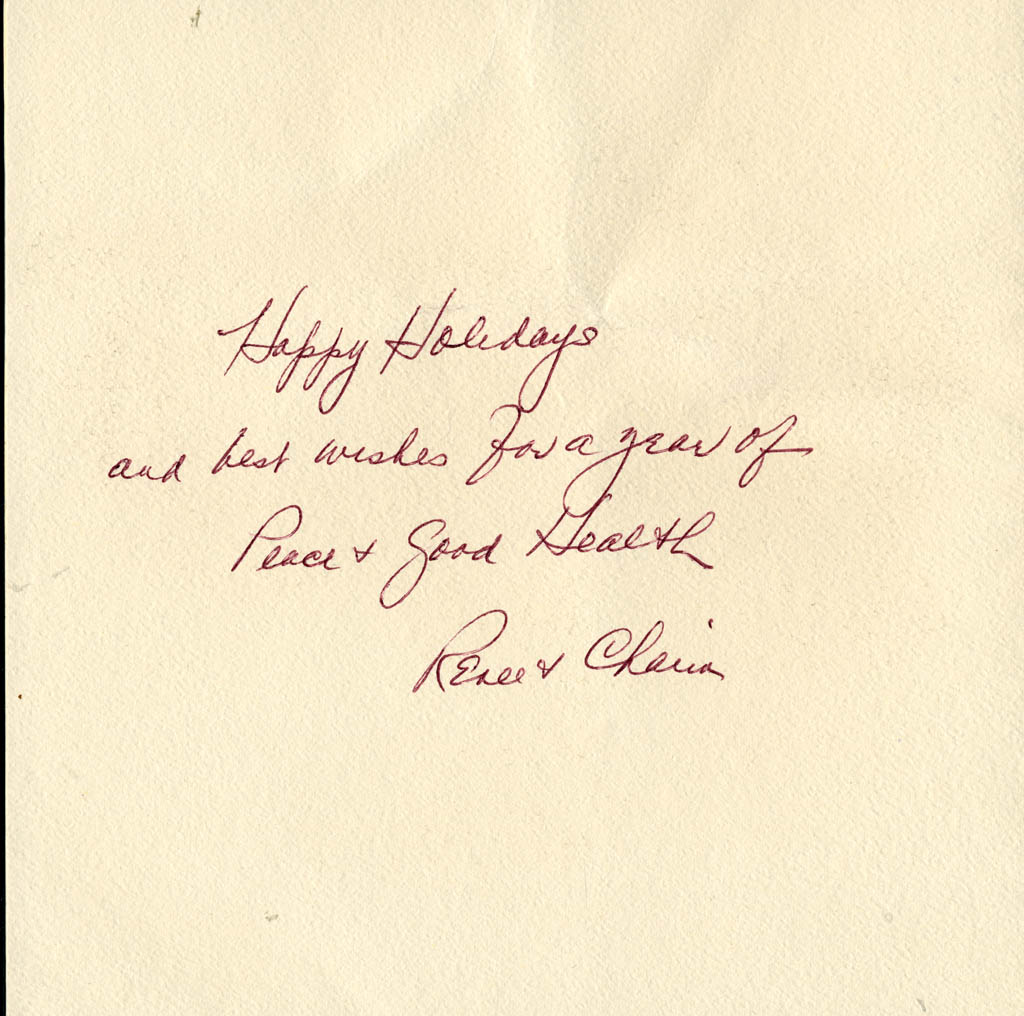 Happy Holidays
and best wishes for a year of
Peace + Good Health
Renee + Chaim